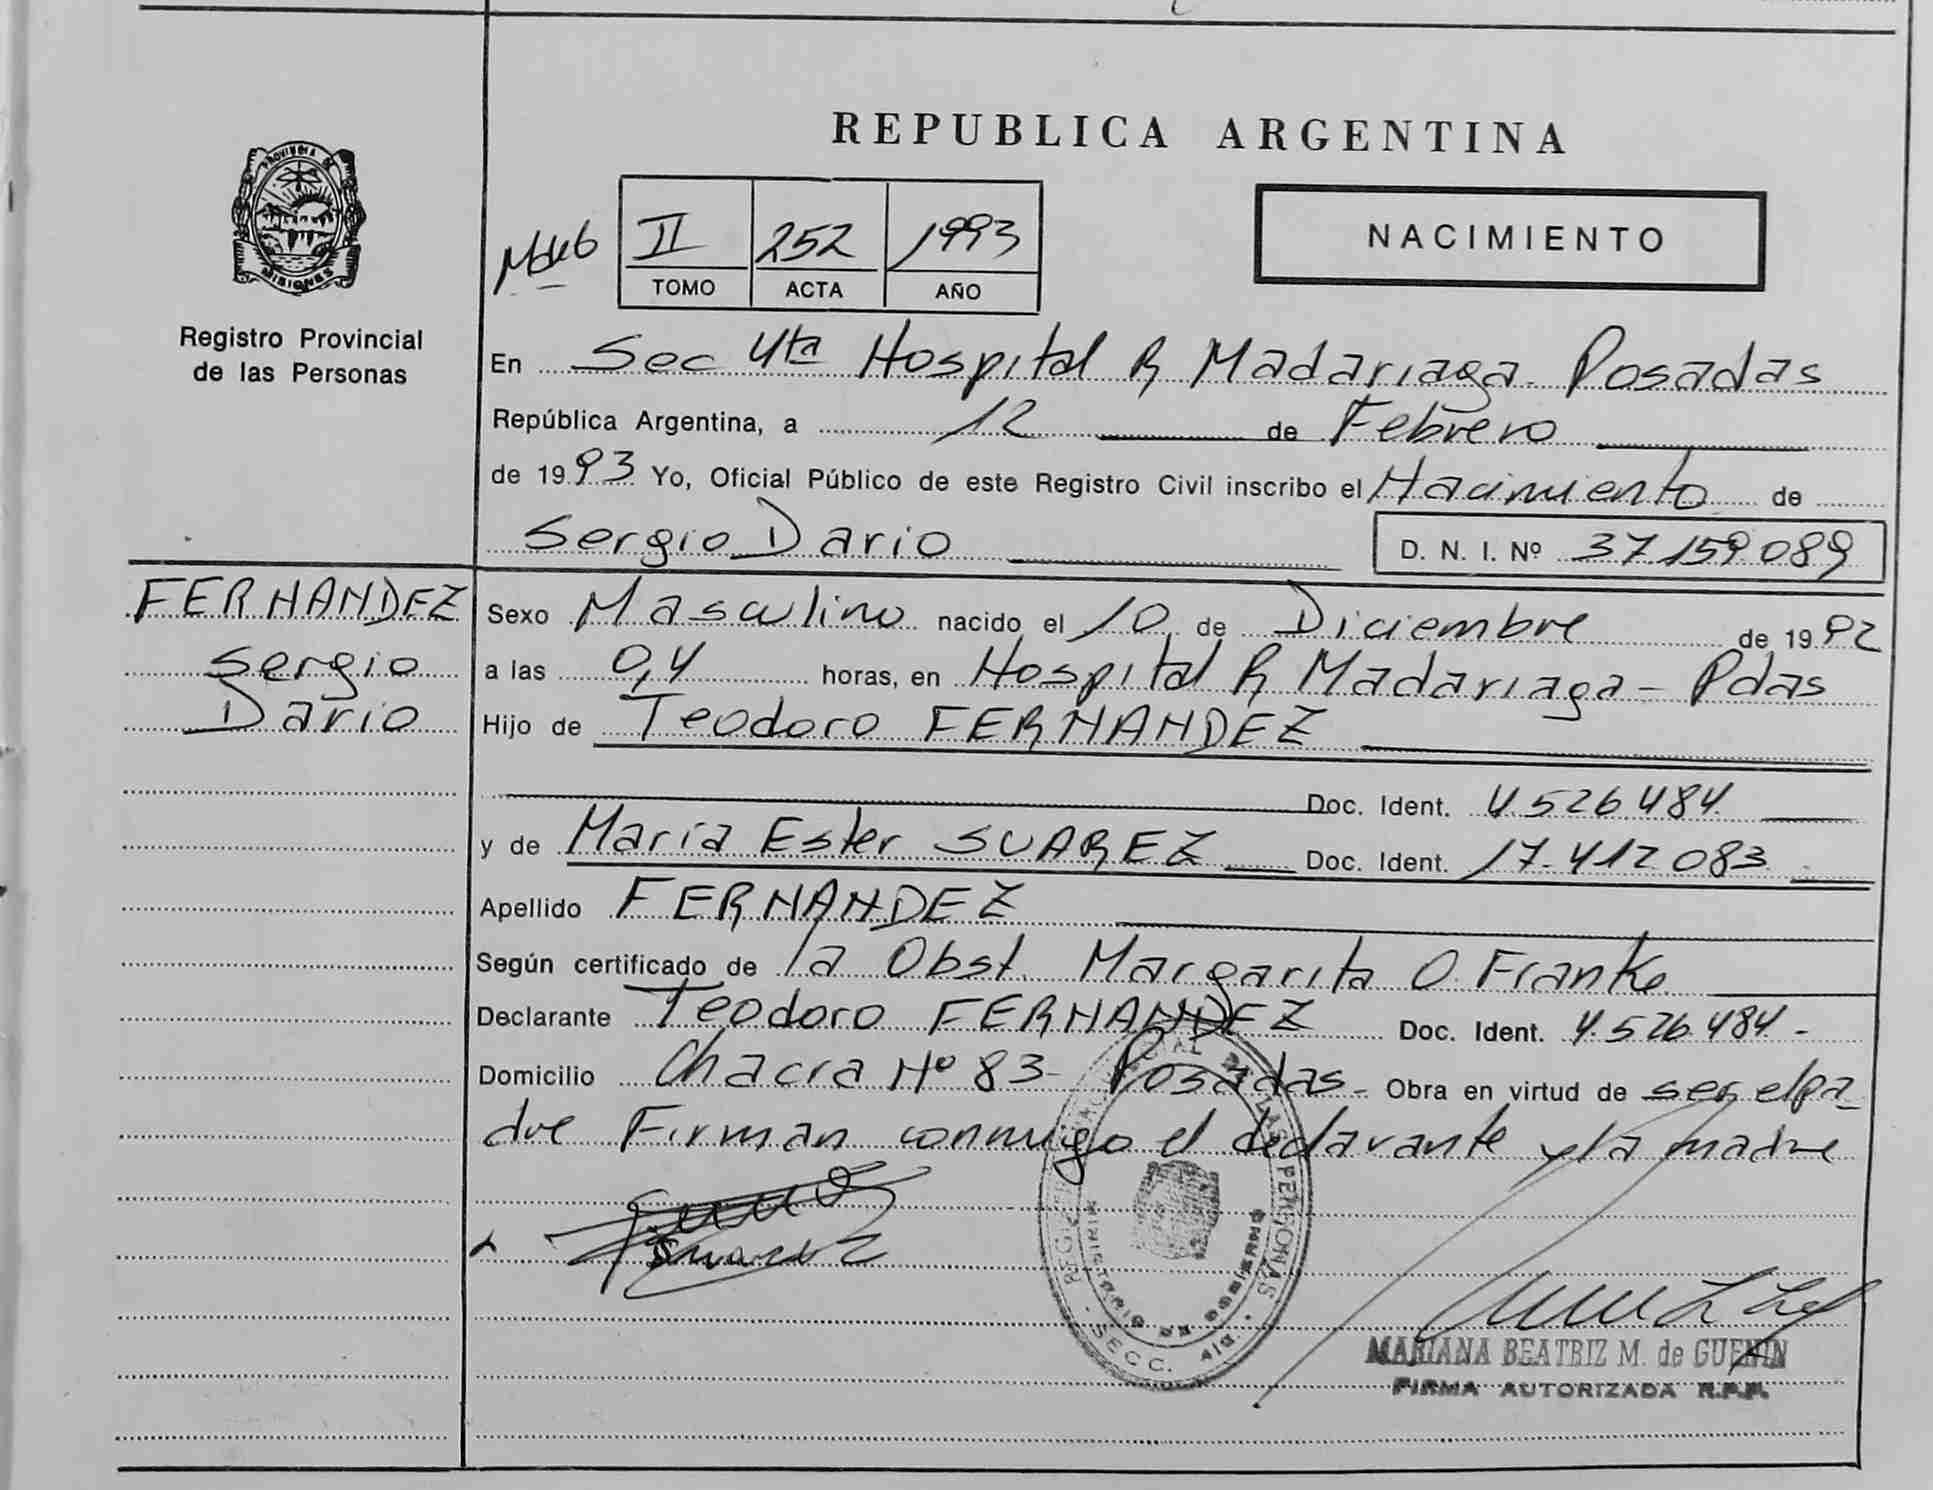 REPUBLICA ARGENTINA
PROVINCIA DE
MISIONES
Registro Provincial
de las Personas
II 252 1993
TOMO ACTA AÑO
NACIMIENTO
En Sec 4ta Hospital R Madariaga Posadas
República Argentina, a 12 de Febrero
de 1993 Yo, Oficial Público de este Registro Civil inscribo el Nacimiento de
Sergio Dario D. N. I. Nº 37.159.089
FERNANDEZ
Sergio
Dario
Sexo Masculino nacido el 10 de Diciembre de 1992
a las 0,4 horas, en Hospital R Madariaga - Pdas
Hijo de Teodoro FERNANDEZ
Doc. Ident. 4.526.484.
y de María Ester SUAREZ Doc. Ident. 17.412.083
Apellido FERNANDEZ
Según certificado de la Obst. Margarita O. Franke
Declarante Teodoro FERNANDEZ Doc. Ident. 4.526.484-
Domicilio Chacra Nº 83- Posadas- Obra en virtud de ser el pa-
dre Firman conmigo el declarante y la madre
DE LAS PERSONAS
MINISTERIO DE GOBIERNO
SECC. 4ta.
MARIANA BEATRIZ M. de GUENIN
FIRMA AUTORIZADA R.P.P.